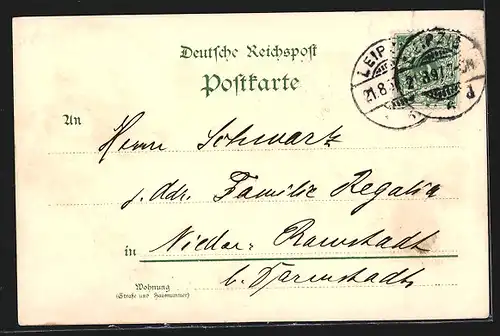 Deutsche Reichspost
Postkarte
LEIPZIG
21.8.97
An
Herrn Schwartz
p. Adr. Familie Regalia
in Nieder-Ramstadt
b. Darmstadt
Wohnung
(Straße und Hausnummer)